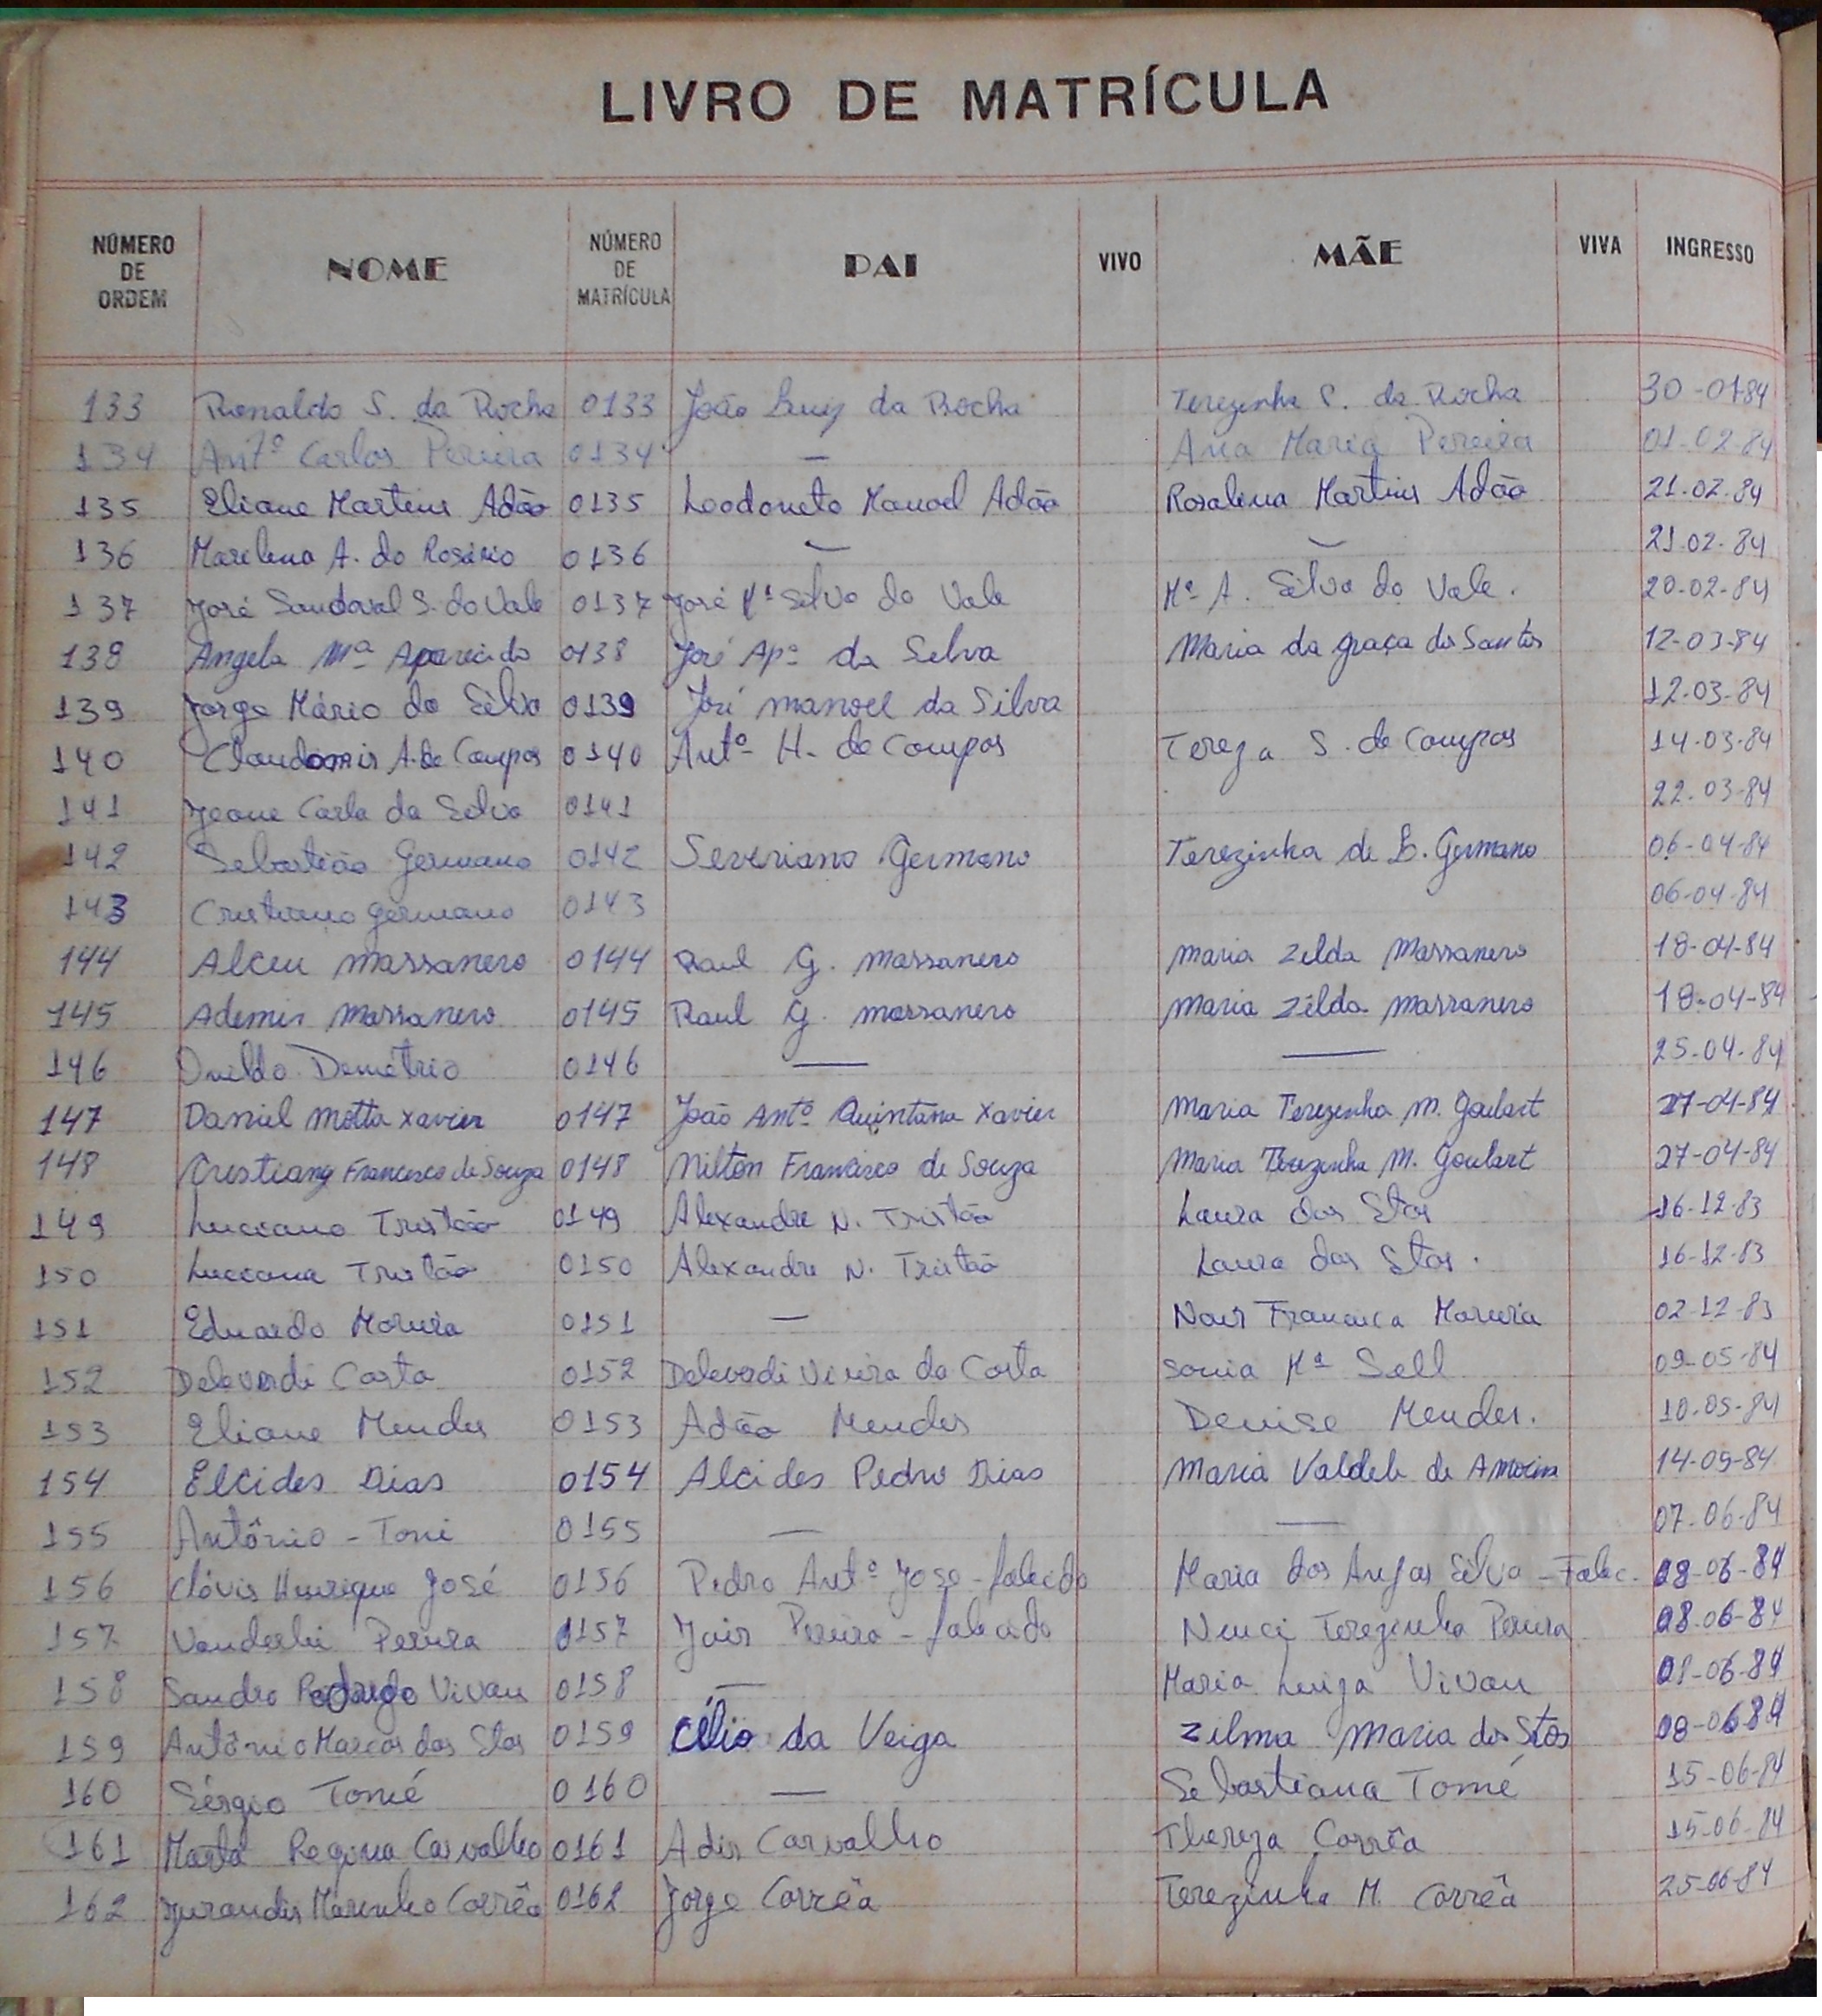 LIVRO DE MATRÍCULA
NÚMERO DE ORDEM NOME NÚMERO DE MATRÍCULA PAI VIVO MÃE VIVA INGRESSO
133 Ronaldo S. da Rocha 0133 João Luiz da Rocha Terezinha S. da Rocha 30-01-84
134 Antº Carlos Pereira 0134 — Ana Maria Pereira 01-02-84
135 Eliane Martins Adão 0135 Leodoneto Manoel Adão Rosalina Martins Adão 21.02.84
136 Marilena A. do Rosário 0136 — — 21.02.84
137 José Sandoval S. do Vale 0137 José Mª Silva do Vale Mª A. Silva do Vale. 20-02-84
138 Angela Mª Aparecida 0138 José Apº da Silva Maria da Graça dos Santos 12-03-84
139 Jorge Mário da Silva 0139 José Manoel da Silva 12-03-84
140 Claudomir A. de Campos 0140 Antº H. de Campos Tereza S. de Campos 14-03-84
141 Jeane Carla da Silva 0141 22.03-84
142 Sebastião Germano 0142 Severiano Germano Terezinha de L. Germano 06-04-84
143 Cristiano Germano 0143 06-04-84
144 Alceu Massanero 0144 Raul G. Massanero Maria Zelda Massanero 18-04-84
145 Ademir Massanero 0145 Raul G. Massanero Maria Zélda Massanero 18-04-84
146 Ovildo Demétrio 0146 — — 25-04-84
147 Daniel Motta Xavier 0147 João Antº Quintana Xavier Maria Terezinha M. Goulart 27-04-84
148 Cristiany Francisco de Souza 0148 Milton Francisco de Souza Maria Terezinha M. Goulart 27-04-84
149 Luciano Tristão 0149 Alexandre N. Tristão Laura dos Stos 16-12-83
150 Luciana Tristão 0150 Alexandre N. Tristão Laura dos Stos. 16-12-83
151 Eduardo Moreira 0151 — Nair Francisca Moreira 02-12-83
152 Delevardi Costa 0152 Delevardi Vieira da Costa Sonia Mª Sell 09-05-84
153 Eliane Mendes 0153 Adão Mendes Denise Mendes. 10-05-84
154 Elcides Dias 0154 Alcides Pedro Dias Maria Valdele de Amorim 14-09-84
155 Antônio - Toni 0155 — — 07-06-84
156 Clóvis Henrique José 0156 Pedro Antº José - falecido Maria dos Anjos Silva - Falec. 08-06-84
157 Vanderlei Pereira 0157 Jair Pereira - falecido Nenci Terezinha Pereira 08.06-84
158 Sandro Rodrigo Vivan 0158 — Maria Luiza Vivan 08-06-84
159 Antônio Marcos dos Stos 0159 Célio da Veiga Zilma Maria dos Stos 08-06-84
160 Sérgio Tomé 0160 — Sebastiana Tomé 15-06-84
161 Marta Regina Carvalho 0161 Adir Carvalho Thereza Corrêa 15-06-84
162 Jurandir Marinho Corrêa 0162 Jorge Corrêa Terezinha M. Corrêa 25-06-84